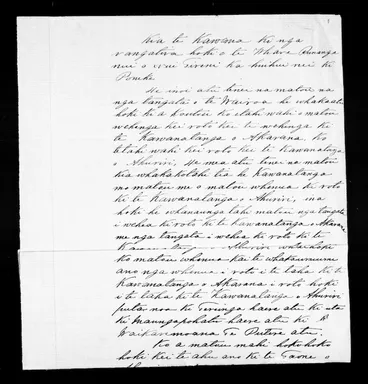 Kia te Kawana ki nga
rangatira hoki o te Whare Runanga
nui o Niu Tireni ka huihui nei ki
Poneke
He inoi atu tenei na matou na
nga tangata o te Wairoa he whakaatu
hoki ki a koutou ko etahi wahi o matou
wehenga kei roto kei te wehenga ki
te Kawanatanga o Akarana ko
Etahi wahi kei roto kei te Kawanatanga
o Ahuriri. He mea atu tenei na matou
kia whakakotahi tia he Kawanatanga
mo matou me o matou whenua ki roto
ki te Kawanatanga o Ahuriri, ina
hoki he whanaunga tahi matou nga tangata
i wehea ki roto ki te Kawanatanga o Akarana
me nga tangata i wehea ki roto ki te
Ahuriri
ko matou whenua kei te whakaurunga
ano nga whenua i roto i te taha ki te
Kawanatanga o Akarana i roto hoki
i te taha ki te Kawanatanga o Ahuriri
putas noa ki Turanga haere atu ki uta
ki Maungapohatu haere atu ki
Waikaremoana Te Putere atu.
Ko a matou mahi hokohoko
hoki kei te ahu ano ki te Taone o